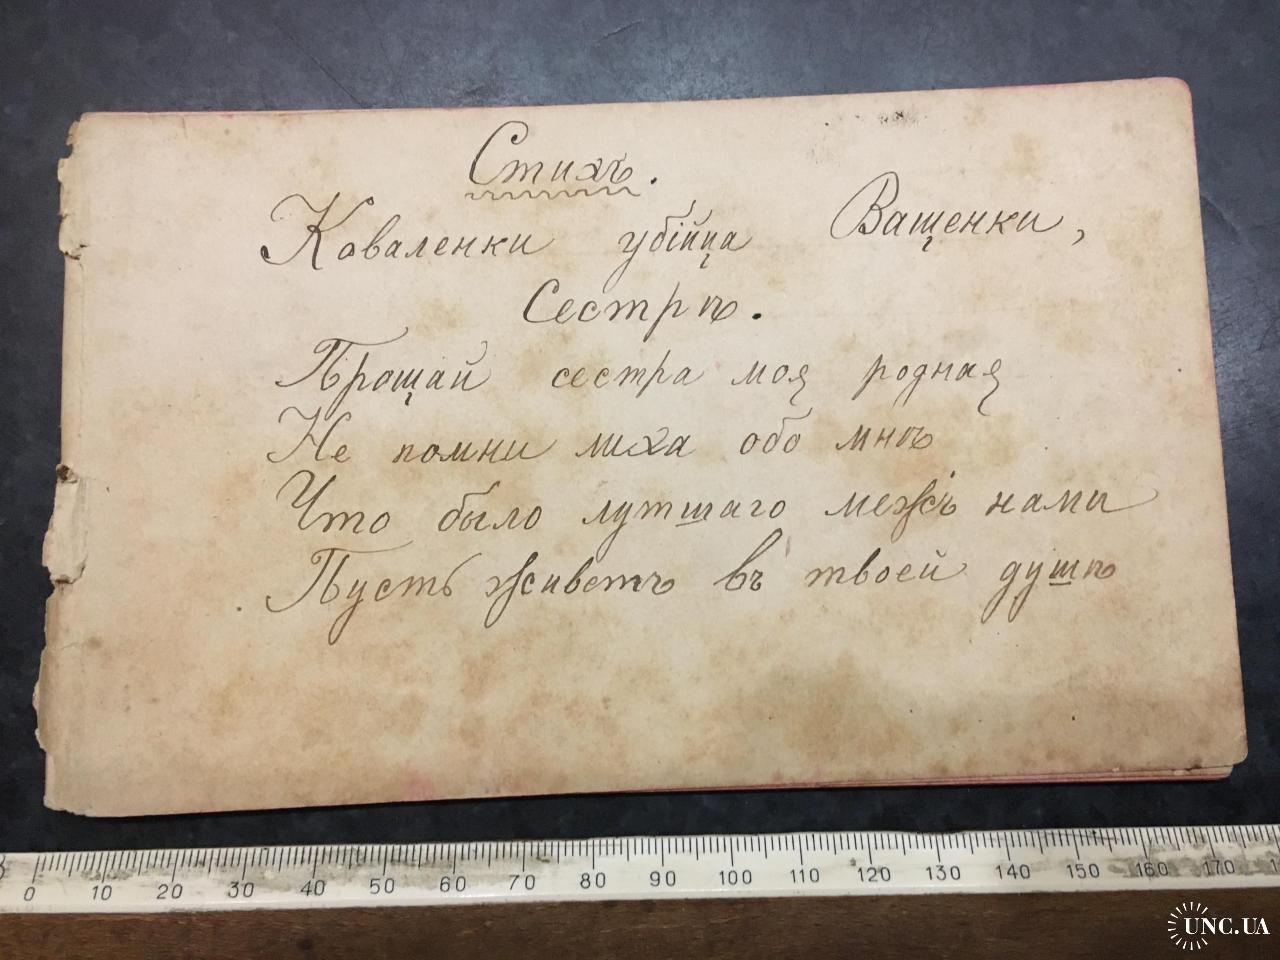 Стихъ.
Коваленки убійца Ващенки,
Сестрѣ.
Прощай сестра моя родная
Не помни лиха обо мнѣ
Что было лутшаго межъ нами
Пусть живетъ въ твоей душѣ
0 10 20 30 40 50 60 70 80 90 100 110 120 130 140 150 160 170
UNC.UA